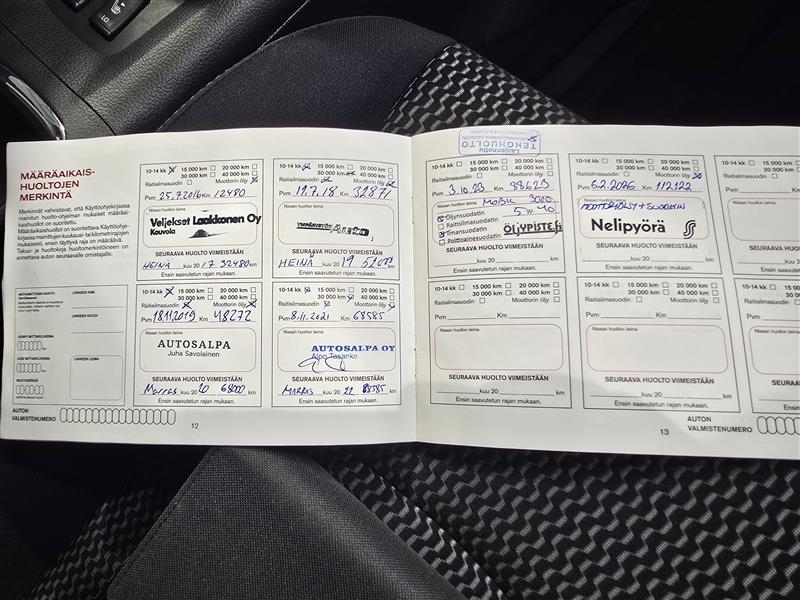 MÄÄRÄAIKAIS-
HUOLTOJEN
MERKINTÄ
Merkinnät vahvistavat, että Käyttöohjekirjassa
mainitut huolto-ohjelman mukaiset määrä-
aikaishuollot on suoritettu.
Määräaikaishuollot on suoritettava Käyttöohje-
kirjassa mainittujen kuukausi- tai kilometrirajojen
mukaisesti, ensin täyttyvä raja on määräävä.
Takuu- ja huoltokirja huoltomerkintöineen on
annettava auton seuraavalle omistajalle.
LIIKKEEN NIMI
LIIKKEEN KOODI
LIIKKEEN LEIMA
AUTON
VALMISTENUMERO
10-14 kk 15 000 km 20 000 km
30 000 km 40 000 km
Raitisilmasuodin Moottorin öljy
Pvm 25.7.2016 Km 12480
Nissan huollon leima
Veljekset Laakkonen Oy
Kouvola
SEURAAVA HUOLTO VIIMEISTÄÄN
HEINÄ kuu 20 17 32480 km
Ensin saavutetun rajan mukaan.
10-14 kk 15 000 km 20 000 km
30 000 km 40 000 km
Raitisilmasuodin Moottorin öljy
Pvm 19.7.18 Km 32871
Nissan huollon leima
SEURAAVA HUOLTO VIIMEISTÄÄN
HEINÄ kuu 20 19
Ensin saavutetun rajan mukaan.
10-14 kk 15 000 km 20 000 km
30 000 km 40 000 km
Raitisilmasuodin Moottorin öljy
Pvm 18.11.2019 Km 48272
Nissan huollon leima
AUTOSALPA
Juha Savolainen
SEURAAVA HUOLTO VIIMEISTÄÄN
Marras kuu 20 20 68000 km
Ensin saavutetun rajan mukaan.
10-14 kk 15 000 km 20 000 km
30 000 km 40 000 km
Raitisilmasuodin Moottorin öljy
Pvm 8.11.2021 Km 68585
Nissan huollon leima
AUTOSALPA OY
Alpo Tasanko
SEURAAVA HUOLTO VIIMEISTÄÄN
MARRAS kuu 20 22 88585 km
Ensin saavutetun rajan mukaan.
12
Laajennettu
TEHOHUOLTO
10-14 kk 15 000 km 20 000 km
30 000 km 40 000 km
Raitisilmasuodin Moottorin öljy
Pvm 3.10.23 Km 88625
Nissan huollon leima MOBIL 3000
Öljynsuodatin 5 W-40
Raitisilmasuodatin
Ilmansuodatin ÖLJYPISTE.fi
Polttoainesuodatin
SEURAAVA HUOLTO VIIMEISTÄÄN
kuu 20 km
Ensin saavutetun rajan mukaan.
10-14 kk 15 000 km 20 000 km
30 000 km 40 000 km
Raitisilmasuodin Moottorin öljy
Pvm 6.2.2026 Km 112122
Nissan huollon leima
Nelipyörä
SEURAAVA HUOLTO VIIMEISTÄÄN
kuu 20 km
Ensin saavutetun rajan mukaan.
10-14 kk
Raitisilmasuodin
Pvm
Nissan huollon leima
SEURAAVA
Ensin
10-14 kk 15 000 km 20 000 km
30 000 km 40 000 km
Raitisilmasuodin Moottorin öljy
Pvm Km
Nissan huollon leima
SEURAAVA HUOLTO VIIMEISTÄÄN
kuu 20 km
Ensin saavutetun rajan mukaan.
10-14 kk 15 000 km 20 000 km
30 000 km 40 000 km
Raitisilmasuodin Moottorin öljy
Pvm Km
Nissan huollon leima
SEURAAVA HUOLTO VIIMEISTÄÄN
kuu 20 km
Ensin saavutetun rajan mukaan.
10-14 kk
Raitisilmasuodin
Pvm
Nissan huollon leima
SEURAAVA
Ensin
13
AUTON
VALMISTENUMERO